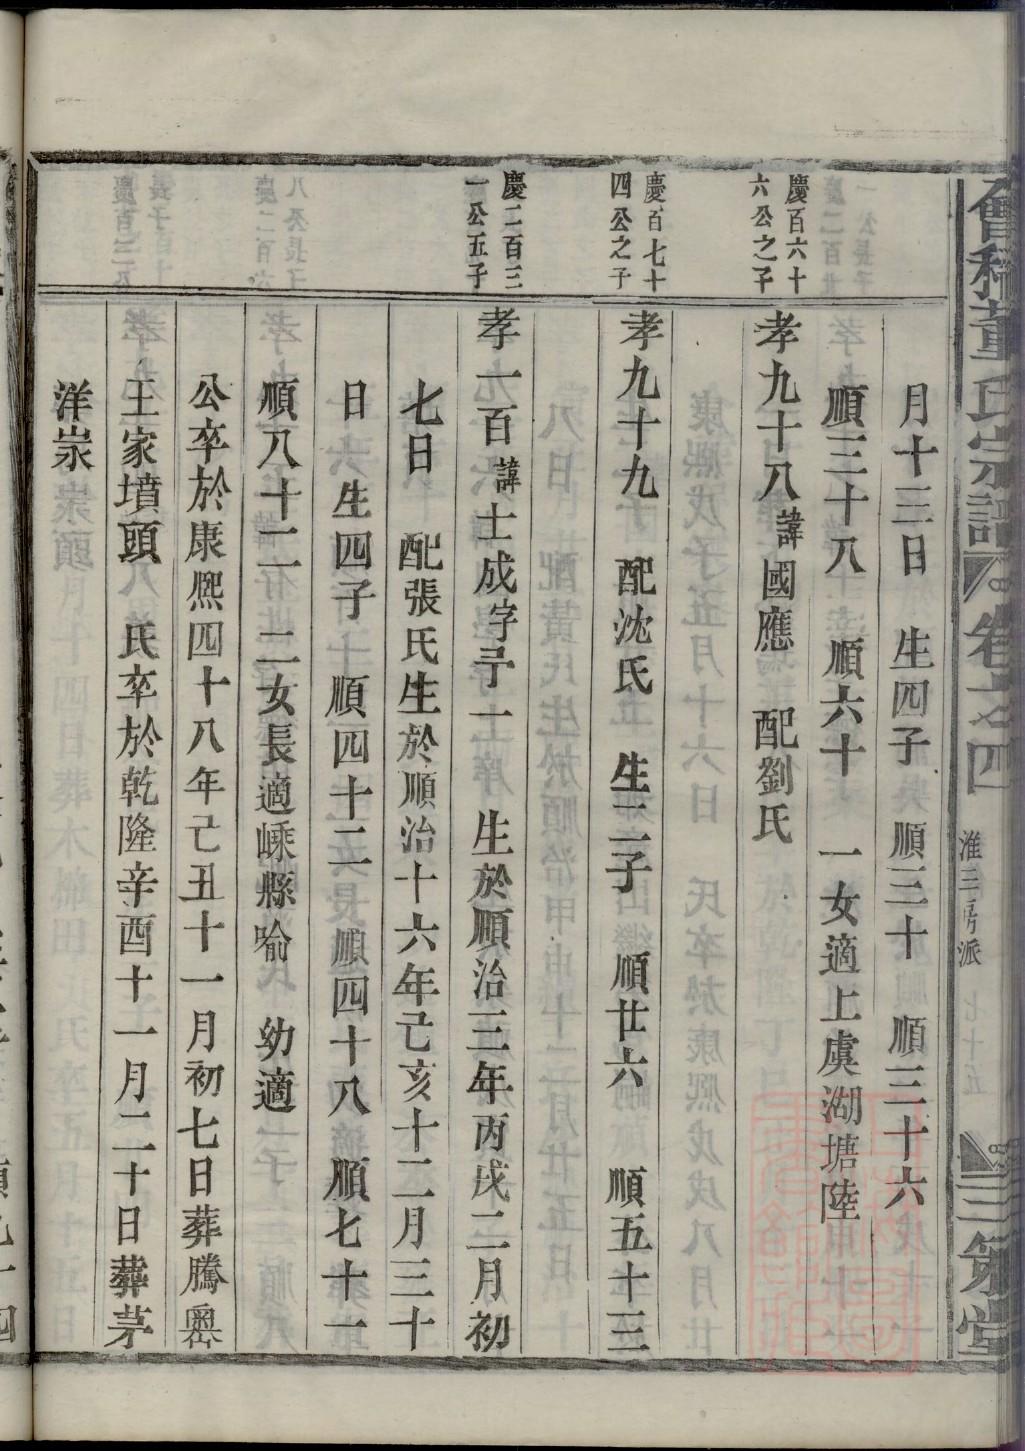 會稽董氏宗譜 卷之四 淮三房派 七十五 三策堂
月十三日 生四子 順三十 順三十六
順三十八 順六十 一女適上虞湖塘陸
慶百六十
六公之子
孝九十八諱國應 配劉氏
慶百七十
四公之子
孝九十九 配沈氏 生二子 順廿六 順五十三
慶二百三
一公五子
孝一百諱士成字 生於順治三年丙戌二月初
七日 配張氏生於順治十六年己亥十二月三十
日 生四子 順四十二 順四十八 順七十一
順八十二 二女長適嵊縣喻 幼適
公卒於康熙四十八年己丑十一月初七日葬騰嶴
王家墳頭 氏卒於乾隆辛酉十一月二十日葬茅
洋岽